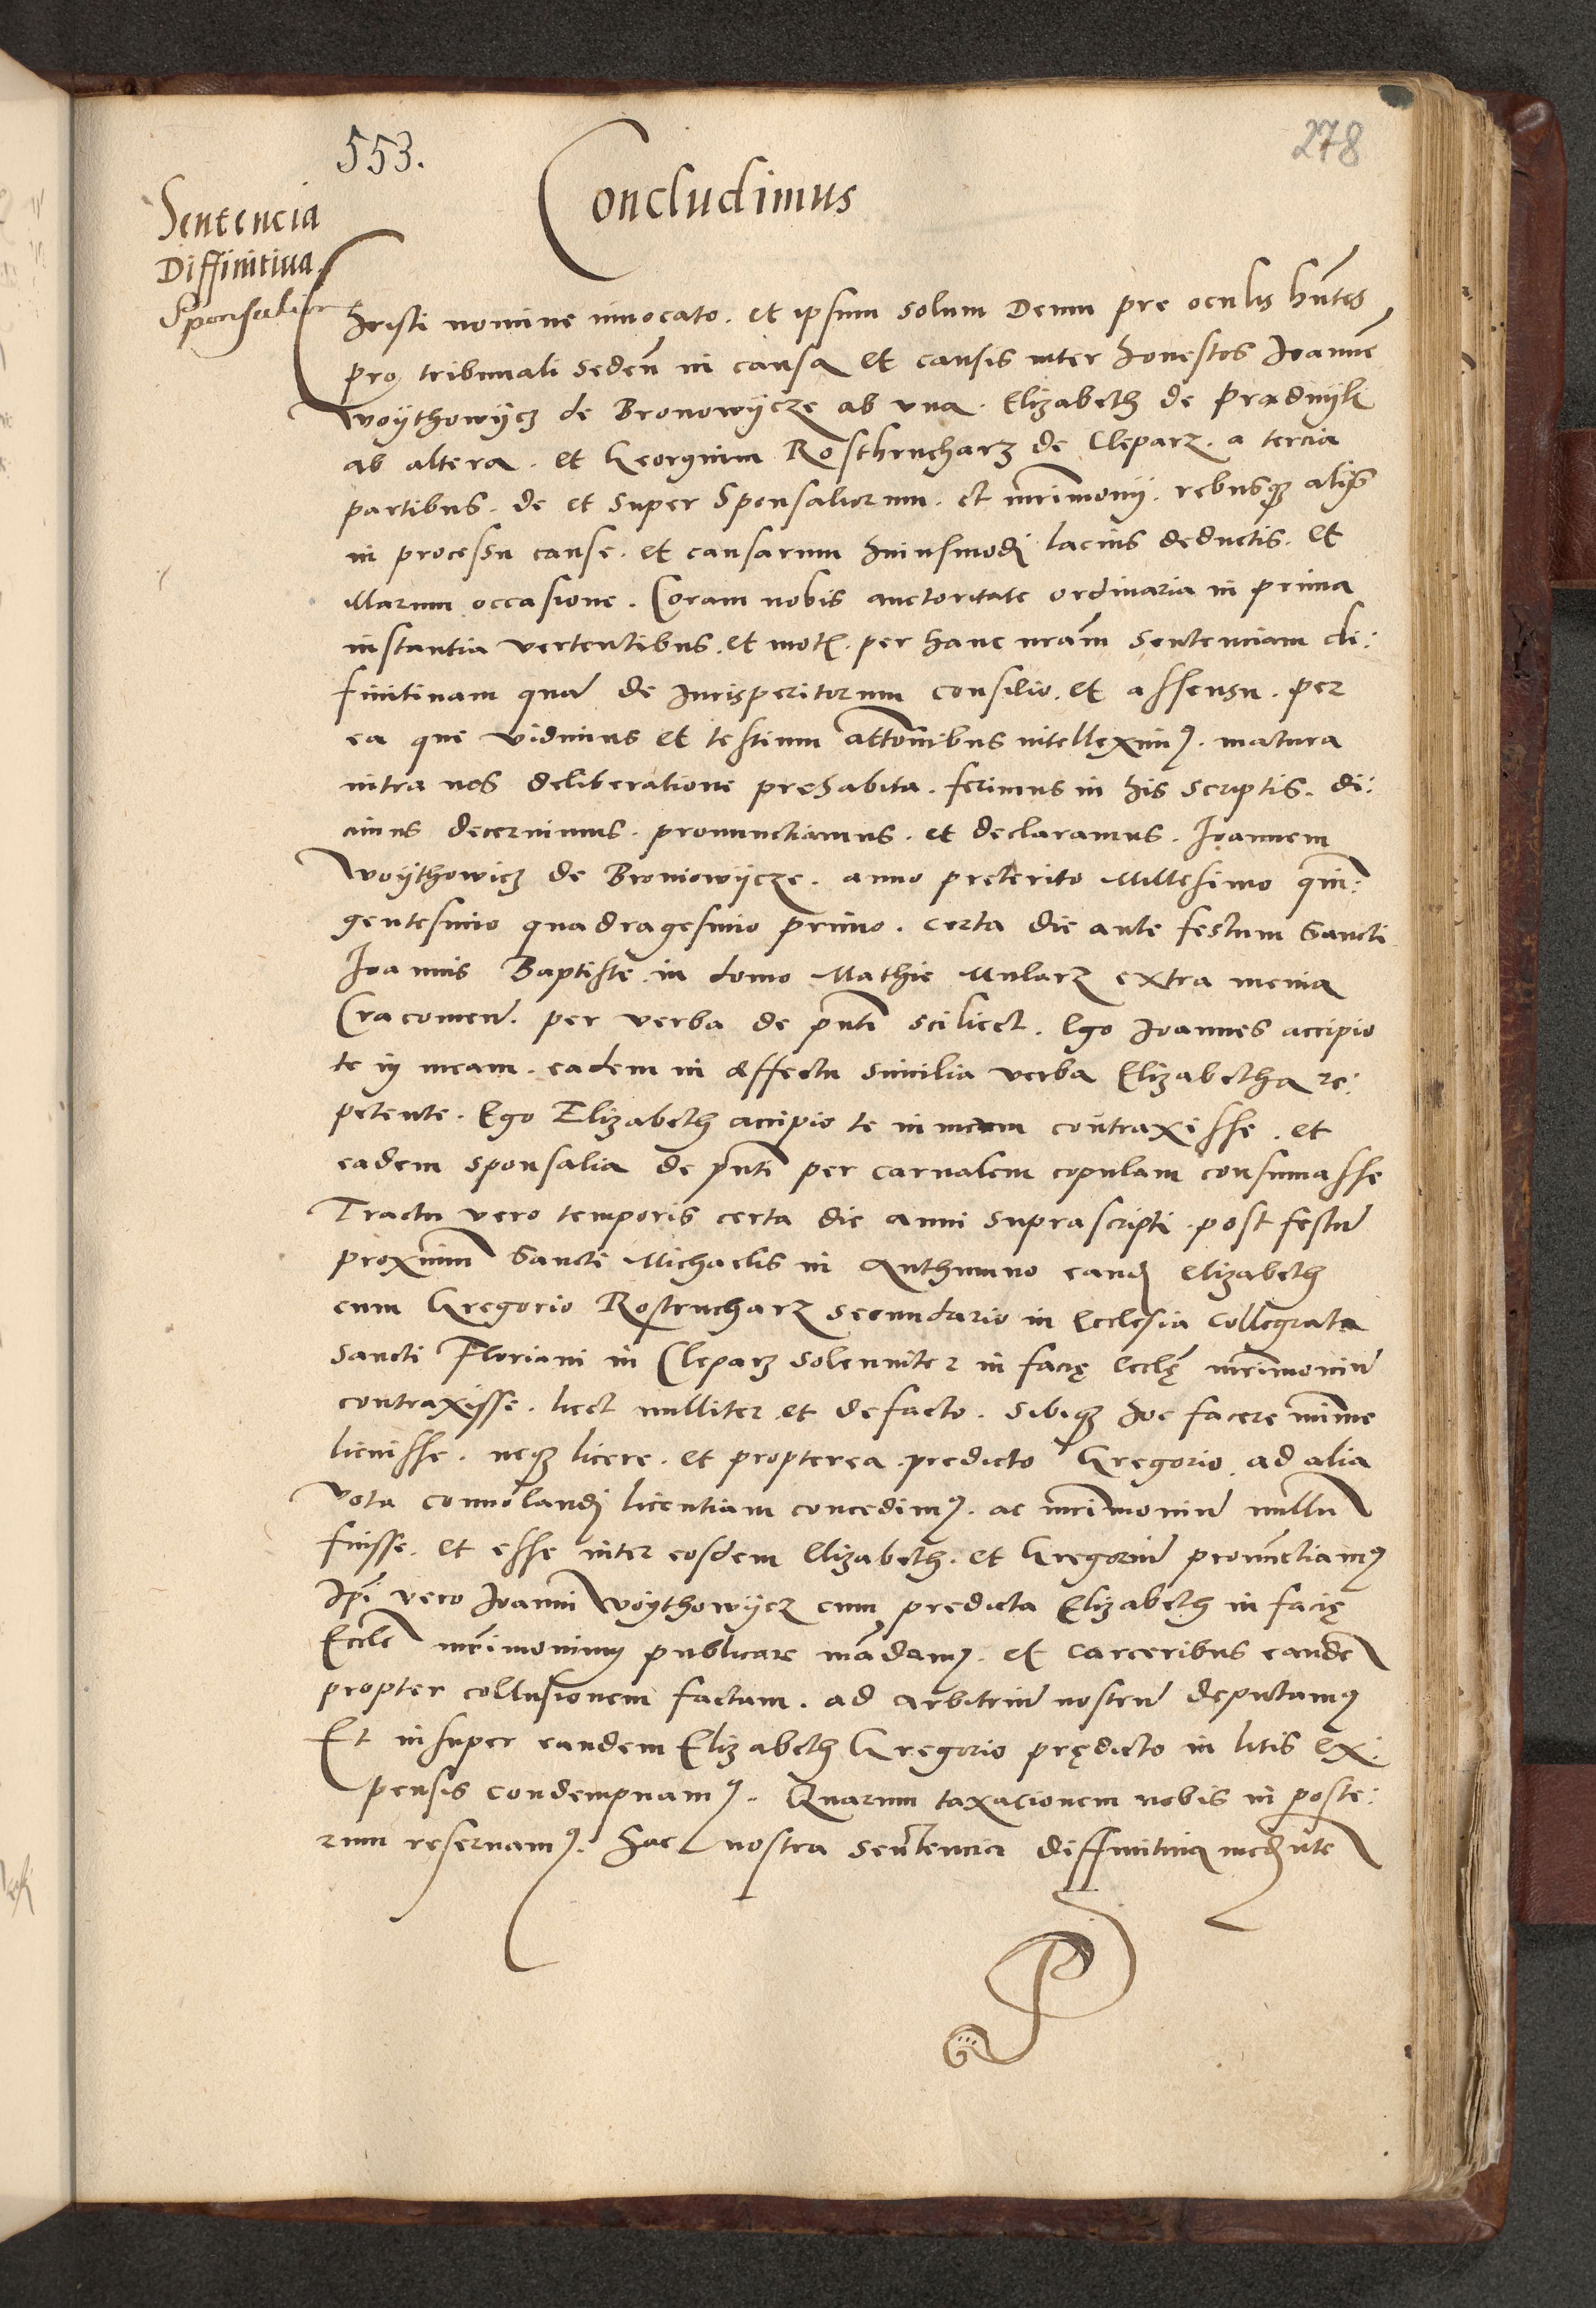 553.
278
Concludimus
Sentencia
Diffinitiua
Sponsalior
Christi nomine inuocato. et ipsum solum Deum pre oculis hñtes
pro tribunali sedeñ in causa et causis inter honestos Joanne͂
Woÿthowÿcz de Bronowÿcze ab vna. Elizabeth de Pradnÿk
ab altera. et Georgium Rosthrucharz de Cleparz. a tercia
partibus. de et super Sponsaliorum. et mr̃imonij. rebusq₃ alijs
in processu cause. et causarum huiusmodj lacius deductis. et
illarum occasione. Coram nobis auctoritate ordinaria in prima
instantia vertentibus. et mot. per hanc nrãm sentenciam di:
finitiuam qua͂ de Jurisperitorum consilio. et assensu. per
ea que vidimus et testium att̃onibus intelleximꝰ. matura
intra nos deliberatione prehabita. ferimus in his scriptis. di:
cimus decernimus. pronunctiamus. et declaramus. Joannem
Woÿthowicz de Broniowÿcze. anno preterito Millesimo quin͂:
gentesimo quadragesimo primo. certa die ante festum Sancti
Joannis Baptiste in domo Mathie Mularz extra menia
Cracouien̄. per verba de pn̄ti scilicet. Ego Joannes accipio
te in meam. eadem in effectu similia verba Elizabetha re:
petente. Ego Elizabeth accipio te in meum contraxisse. et
eadem sponsalia de pn̄ti per carnalem copulam consumasse
Tractu vero temporis certa die anni suprascripti. post festu͂
proximu͂ Sancti Michaelis in Authumno eandē Elizabeth
cum Gregorio Rostrucharz secundario in Ecclesia Collegiata
Sancti Floriani in Cleparz solenniter in facię Ecclę mr̃imoniu͂
contraxisse. licet nulliter et de facto. sibiq₃ hoc facere minime
licuisse. neq₃ licere. et propterea predicto Gregorio ad alia
vota conuolandj licentiam concedimꝰ. ac mr̃imoniu͂ nullu͂
fuisse. et esse inter eosdem Elizabeth. et Gregoriu͂ pronũctiamꝰ
Ip̃i vero Joanni Woÿthowÿcz cum predicta Elizabeth in facię
Eccle͂ mr̃imonium publicare mãdamꝰ. et carceribus eande͂
propter collusionem factam. ad arbitriu͂ nostru͂ deputamꝰ
Et insuper eandem Elizabeth Gregorio prędicto in litis ex:
pensis condempnamꝰ. Quarum taxacionem nobis in poste:
rum reseruamꝰ. hac nostra sen̄tencia diffinitiua mediãte